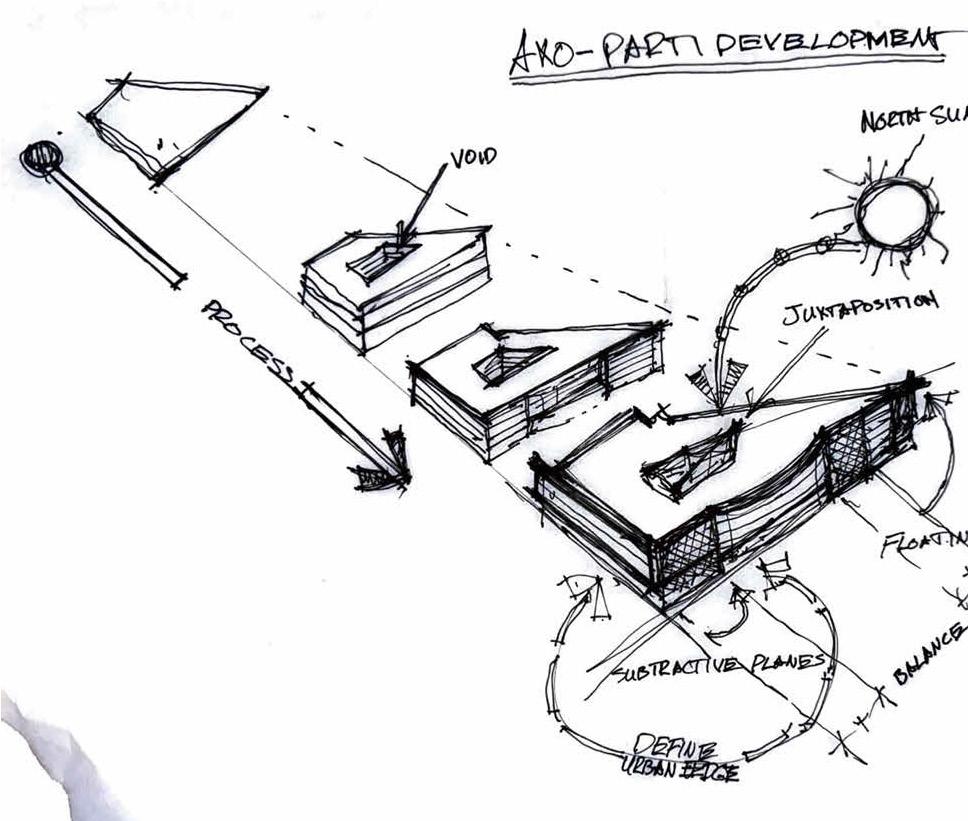 AXO-PARTI DEVELOPMENT
NORTH SU
VOID
JUXTAPOSITION
PROCESS
FLOATIN
BALANCE
SUBTRACTIVE PLANES
DEFINE
URBAN EDGE